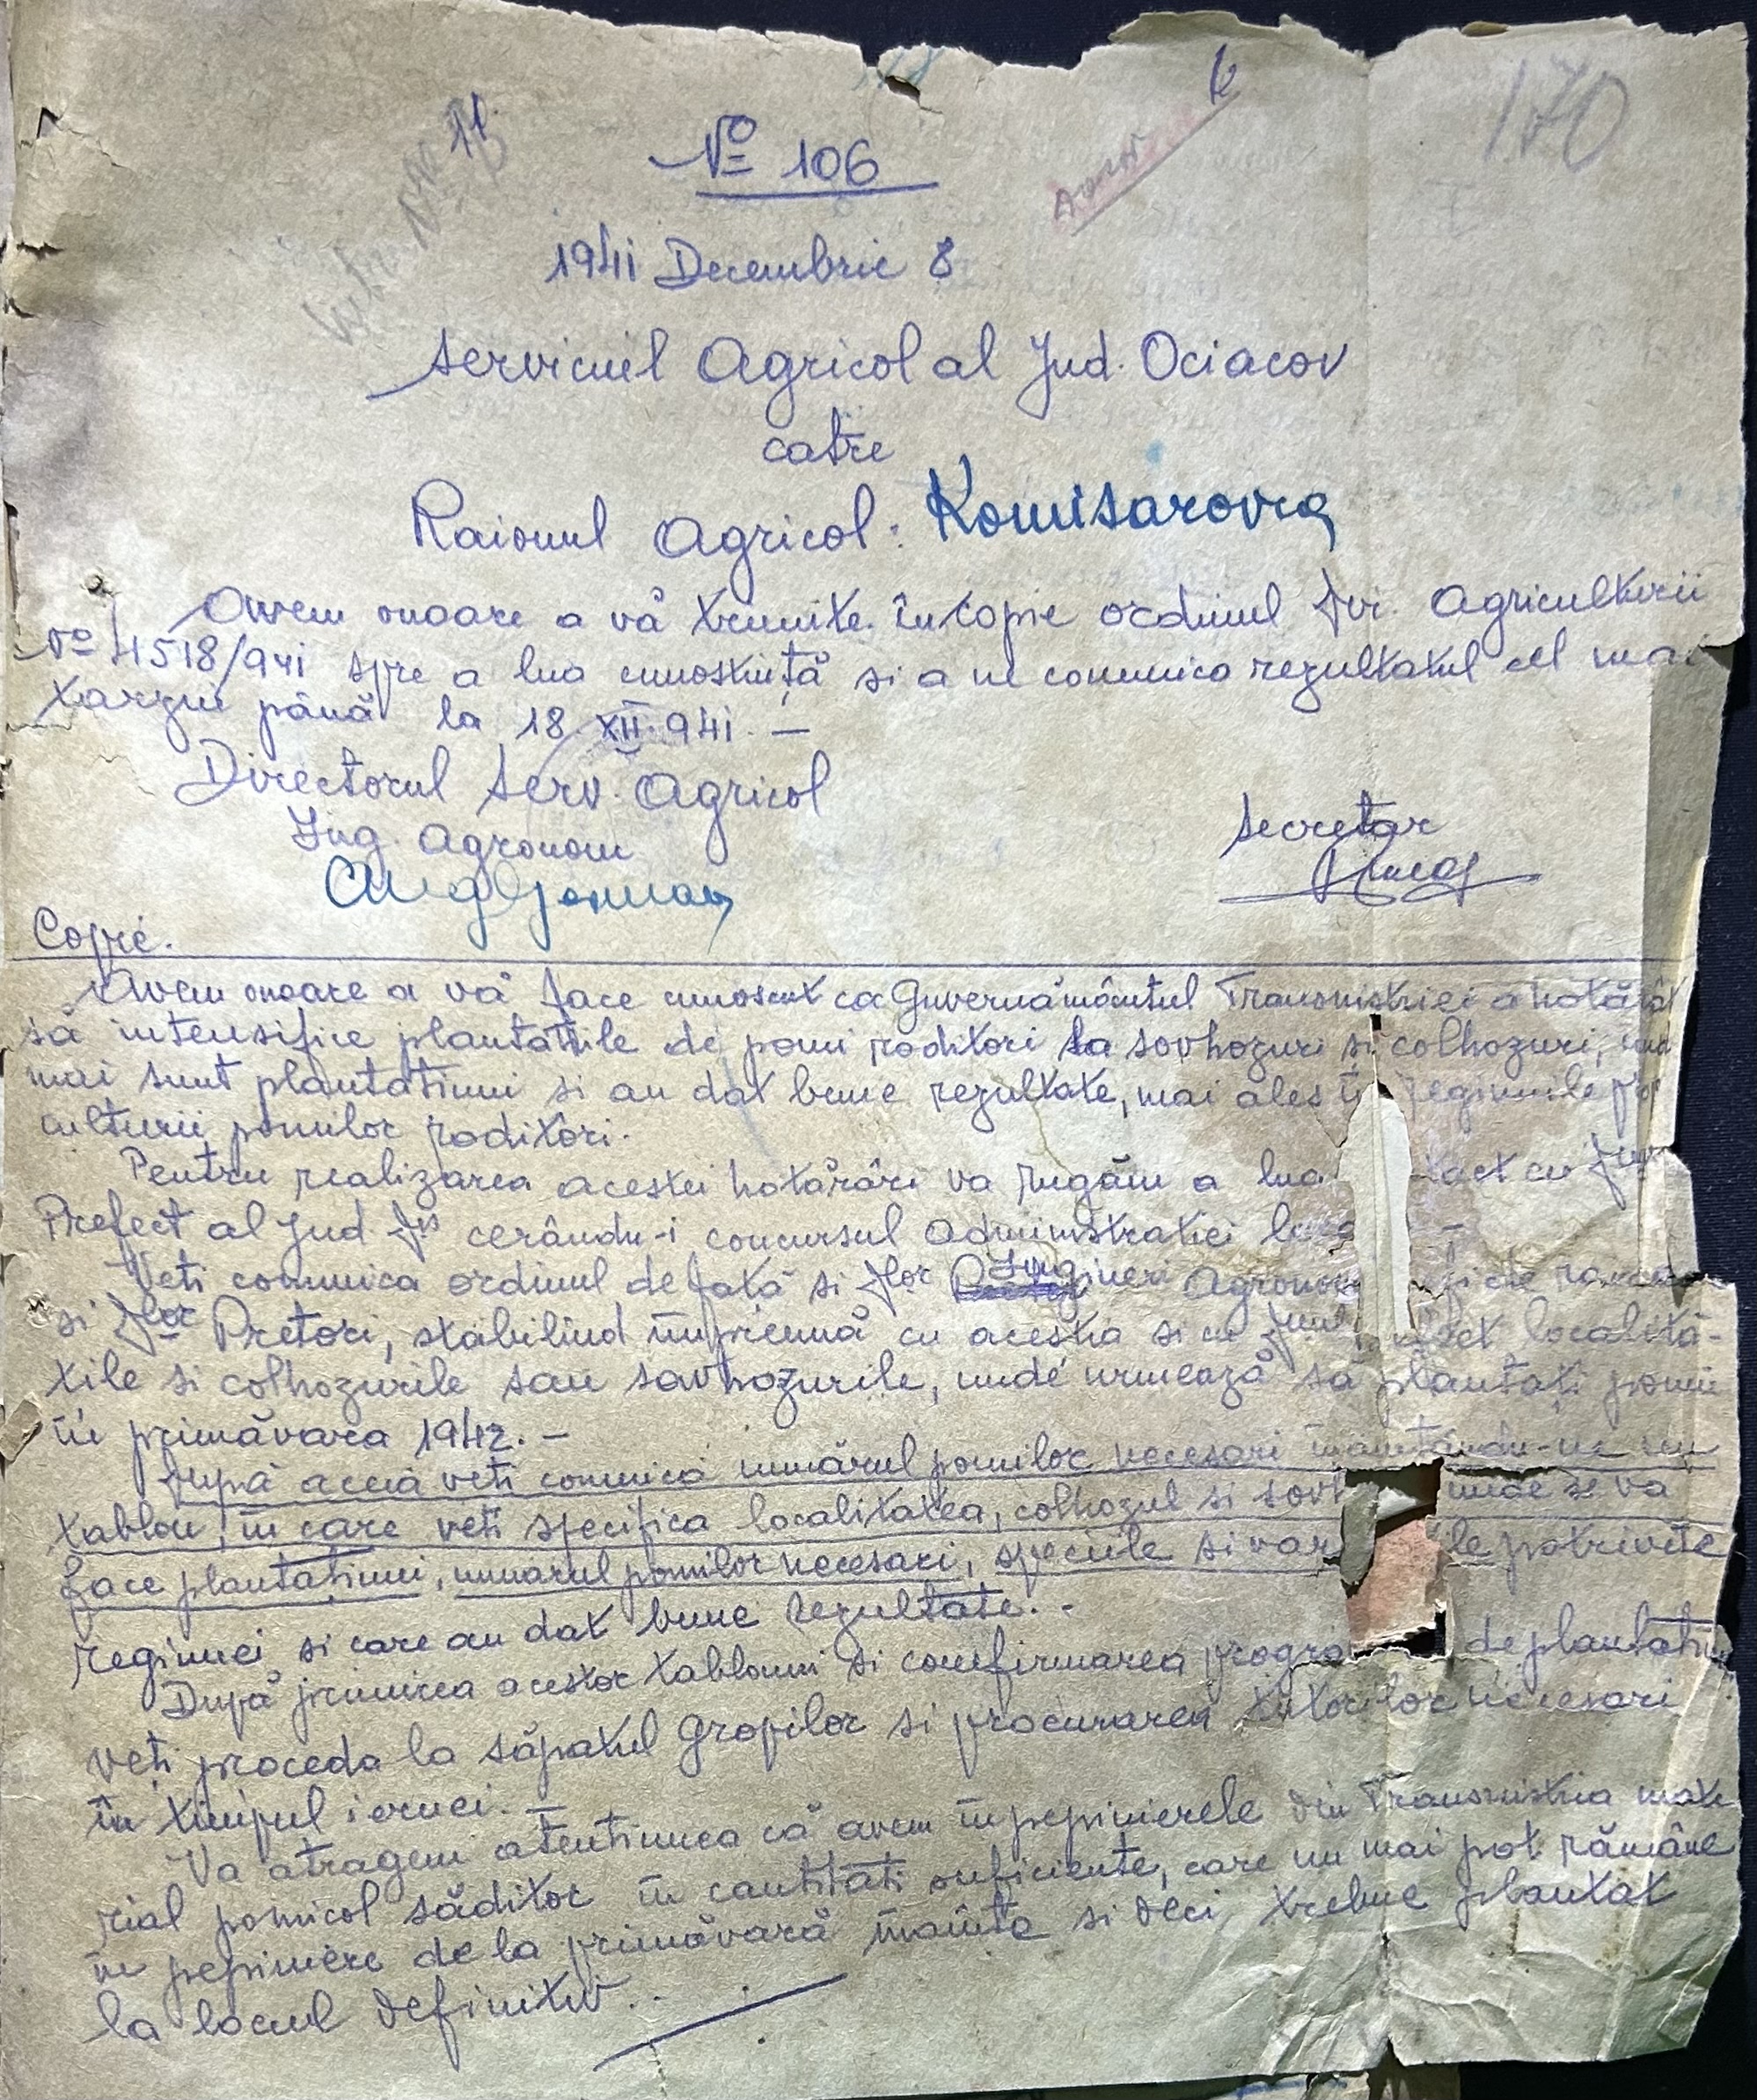 170
№ 106
1941 Decembrie 8
Serviciul Agricol al Jud. Ociacov
catre
Raionul Agricol: Komisarovca
Avem onoare a vă trimite în copie ordinul Agriculturii
№ 4518/941 spre a lua cunostință si a ne comunica rezultatul cel mai
tarziu până la 18 XII 941. —
Directorul Serv. Agricol
Ing. Agronom
Secretar
Copie.
Avem onoare a vă face cunoscut ca Guvernământul Transnistriei a hotărât
să intensifice plantatiile de pomi roditori la sovhozuri si colhozuri,
mai sunt plantatiuni si au dat bune rezultate, mai ales în regiunile
culturii pomilor roditori.
Pentru realizarea acestei hotărâri va rugăm a lua tact cu
Prefect al Jud. cerându-i concursul Administratiei
Veti comunica ordinul de față si Ingineri Agronomi de
si Pretori, stabilind împreună cu acestia si cu localită-
tile si colhozurile sau sovhozurile, unde urmează să plantați pomii
în primăvara 1942. —
După aceia veti comunica numărul pomilor necesari înaintându-ne un
tablou, în care veti specifica localitatea, colhozul si sovh unde se va
face plantatiuni, numarul pomilor necesari, speciile si var le potrivite
regiunei si care au dat bune rezultate. -
După primirea acestor tablouri si confirmarea progra de plantatiuni
veti proceda la săpatul gropilor si procurarea tutorilor necesari
în timpul iernei. —
Va atragem atentiunea că avem în pepinierele din Transnistria mate
rial pomicol săditor în cantităti suficiente, care nu mai pot rămâne
în pepiniere de la primăvară înainte si deci trebue plantat
la locul definitiv.